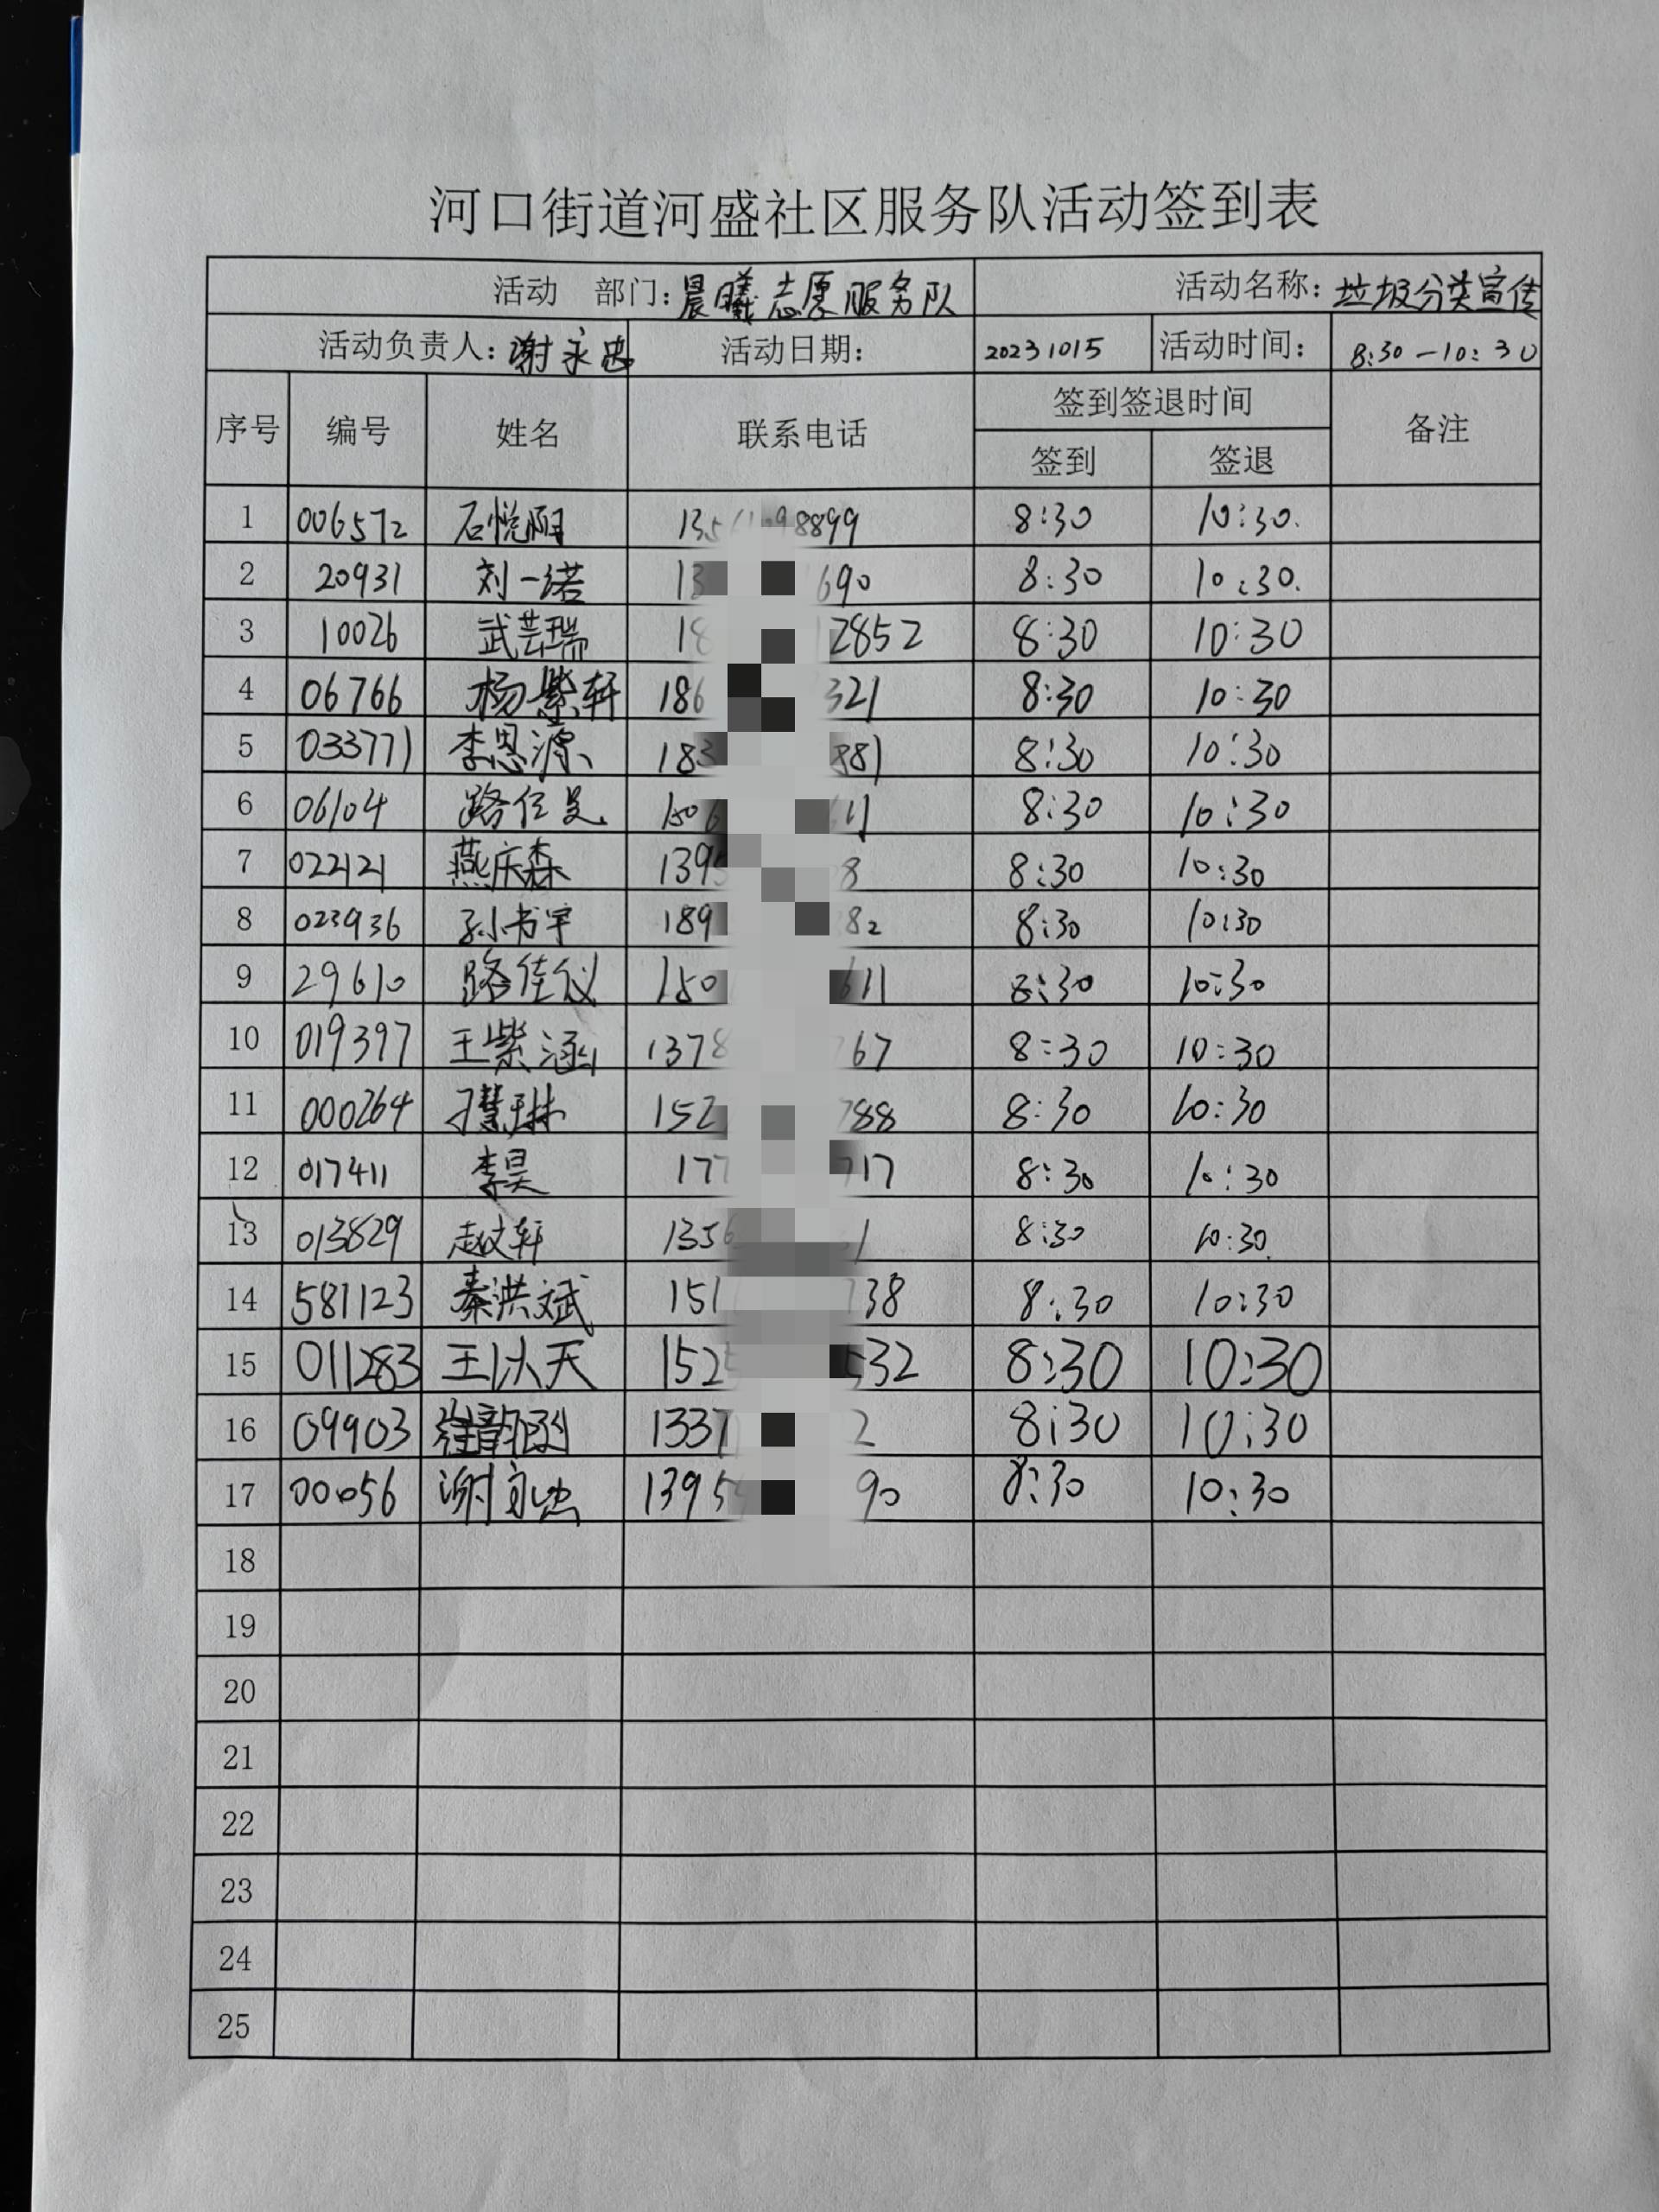 河口街道河盛社区服务队活动签到表
活动 部门：晨曦志愿服务队 活动名称：垃圾分类宣传
活动负责人：谢永忠 活动日期： 20231015 活动时间： 8:30-10:30
序号 编号 姓名 联系电话 签到签退时间 备注
签到 签退
1 006572 石悦阳 8899 8:30 10:30.
2 20931 刘一诺 13 690 8:30 10:30.
3 10026 武芸瑞 18 2852 8:30 10:30
4 06766 杨紫轩 186 321 8:30 10:30
5 033771 李恩源 183 881 8:30 10:30
6 06104 路 150 11 8:30 10:30
7 022121 燕庆森 139 8 8:30 10:30
8 023936 孙书宇 189 82 8:30 10:30
9 29610 路佳仪 150 611 8:30 10:30
10 019397 王紫涵 1378 67 8:30 10:30
11 000264 慧琳 152 788 8:30 10:30
12 017411 李昊 177 717 8:30 10:30
13 013829 赵文轩 1356 1 8:30 10:30
14 581123 秦洪斌 151 738 8:30 10:30
15 011283 王 天 152 532 8:30 10:30
16 09903 1337 2 8:30 10:30
17 00056 谢永忠 1395 90 8:30 10:30
18
19
20
21
22
23
24
25